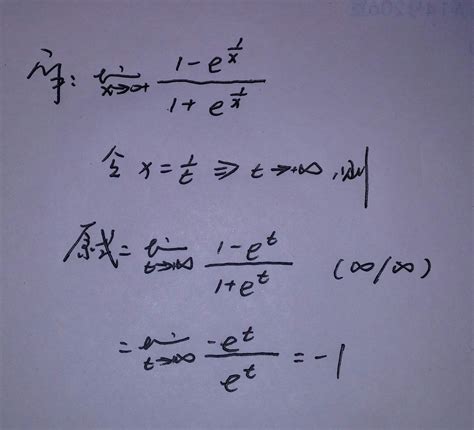 解: lim x→0+ (1-e^(1/x))/(1+e^(1/x))
令 x=1/t ⇒ t→+∞, 则
原式= lim t→+∞ (1-e^t)/(1+e^t) (∞/∞)
= lim t→∞ (-e^t)/(e^t) = -1